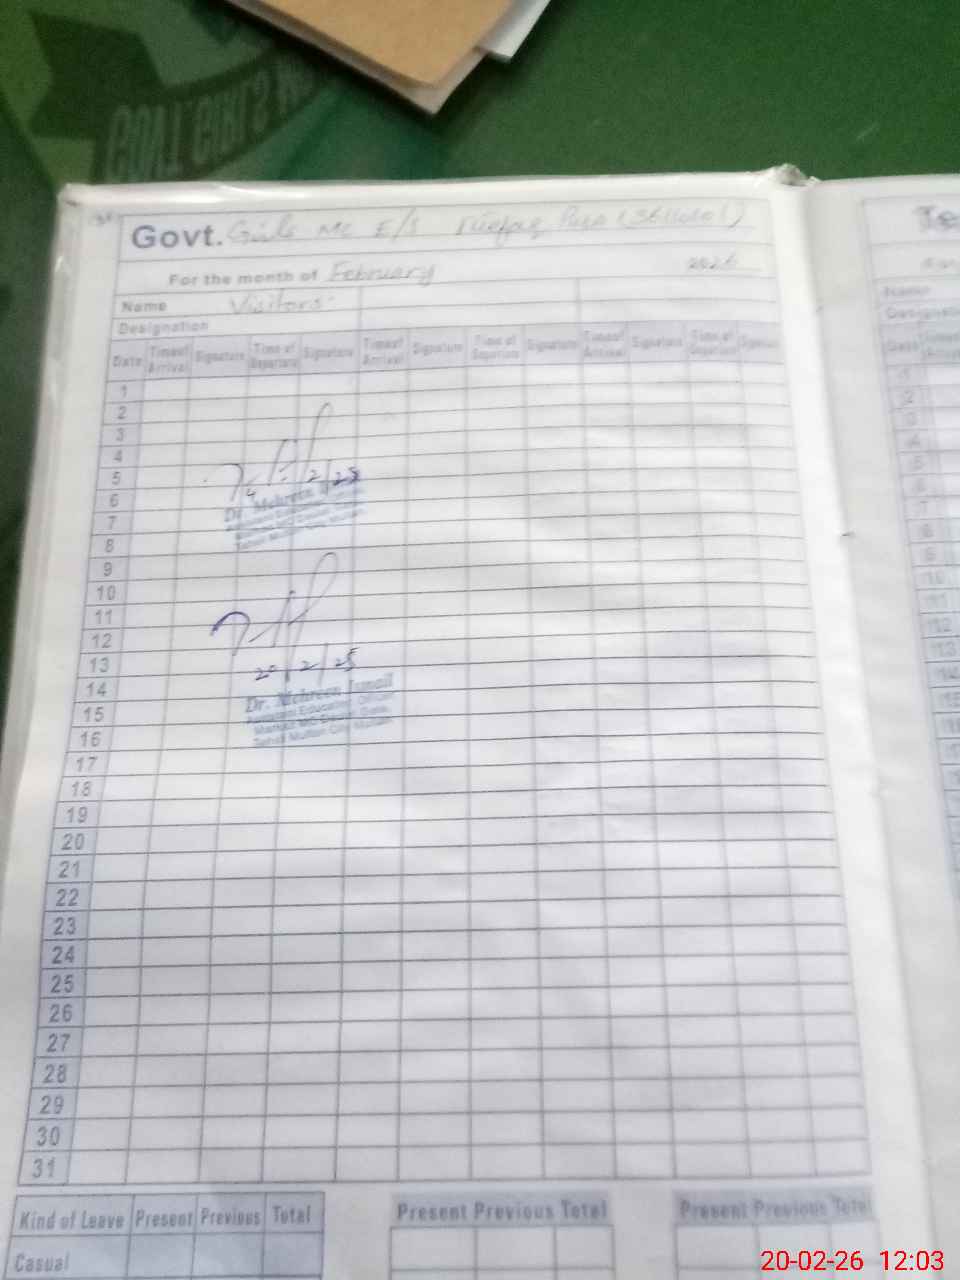 GOVT GIRLS
Govt. Girls MC E/S (36110101)
For the month of February 2026
Name Visitors
Designation
Date Time of Arrival Signature Time of Departure Signature Time of Arrival Signature Time of Departure Signature Time of Arrival Signature Time of Departure Signature
1
2
3
4
5
6
7
8
9
10
11
12
13
14
15
16
17
18
19
20
21
22
23
24
25
26
27
28
29
30
31
4/2/25
Dr. Mehreen
20/2/25
Dr. Mehreen Ismail
Assistant Education Officer
Tehsil Multan City Multan
Kind of Leave Present Previous Total
Present Previous Total
Present Previous Total
Casual
Name
Designation
20-02-26 12:03